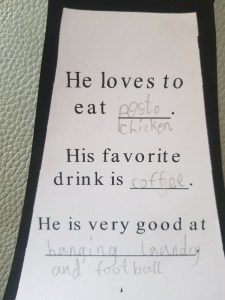 He loves to
eat pesto.
chicken
His favorite
drink is coffee.
He is very good at
hanging laundy
and football